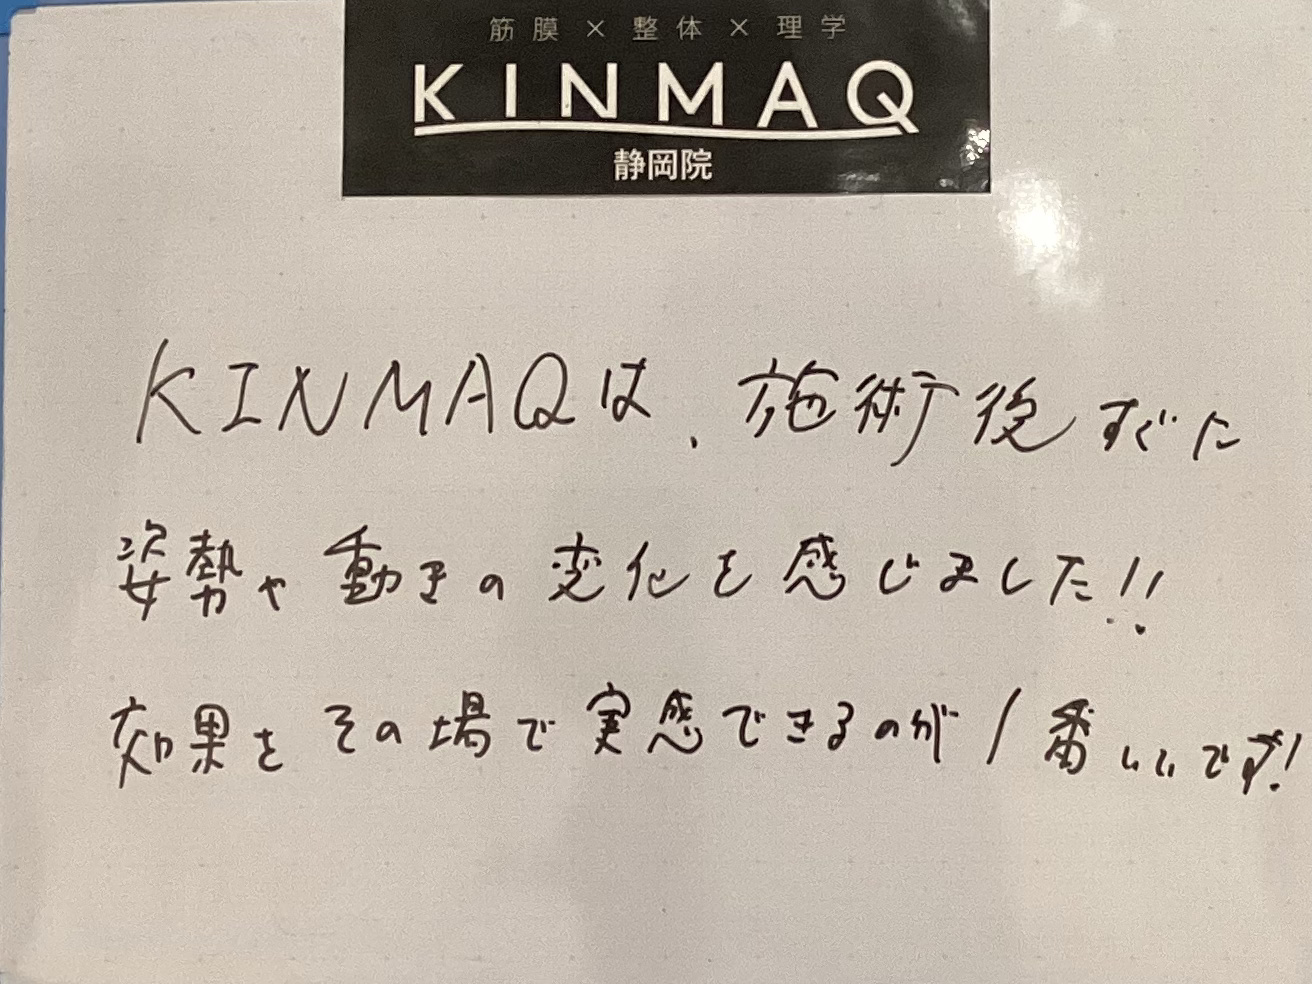 筋膜×整体×理学
KINMAQ
静岡院
KINMAQは、施術後すぐに
姿勢や動きの変化を感じました!!
効果をその場で実感できるのが1番いいです!